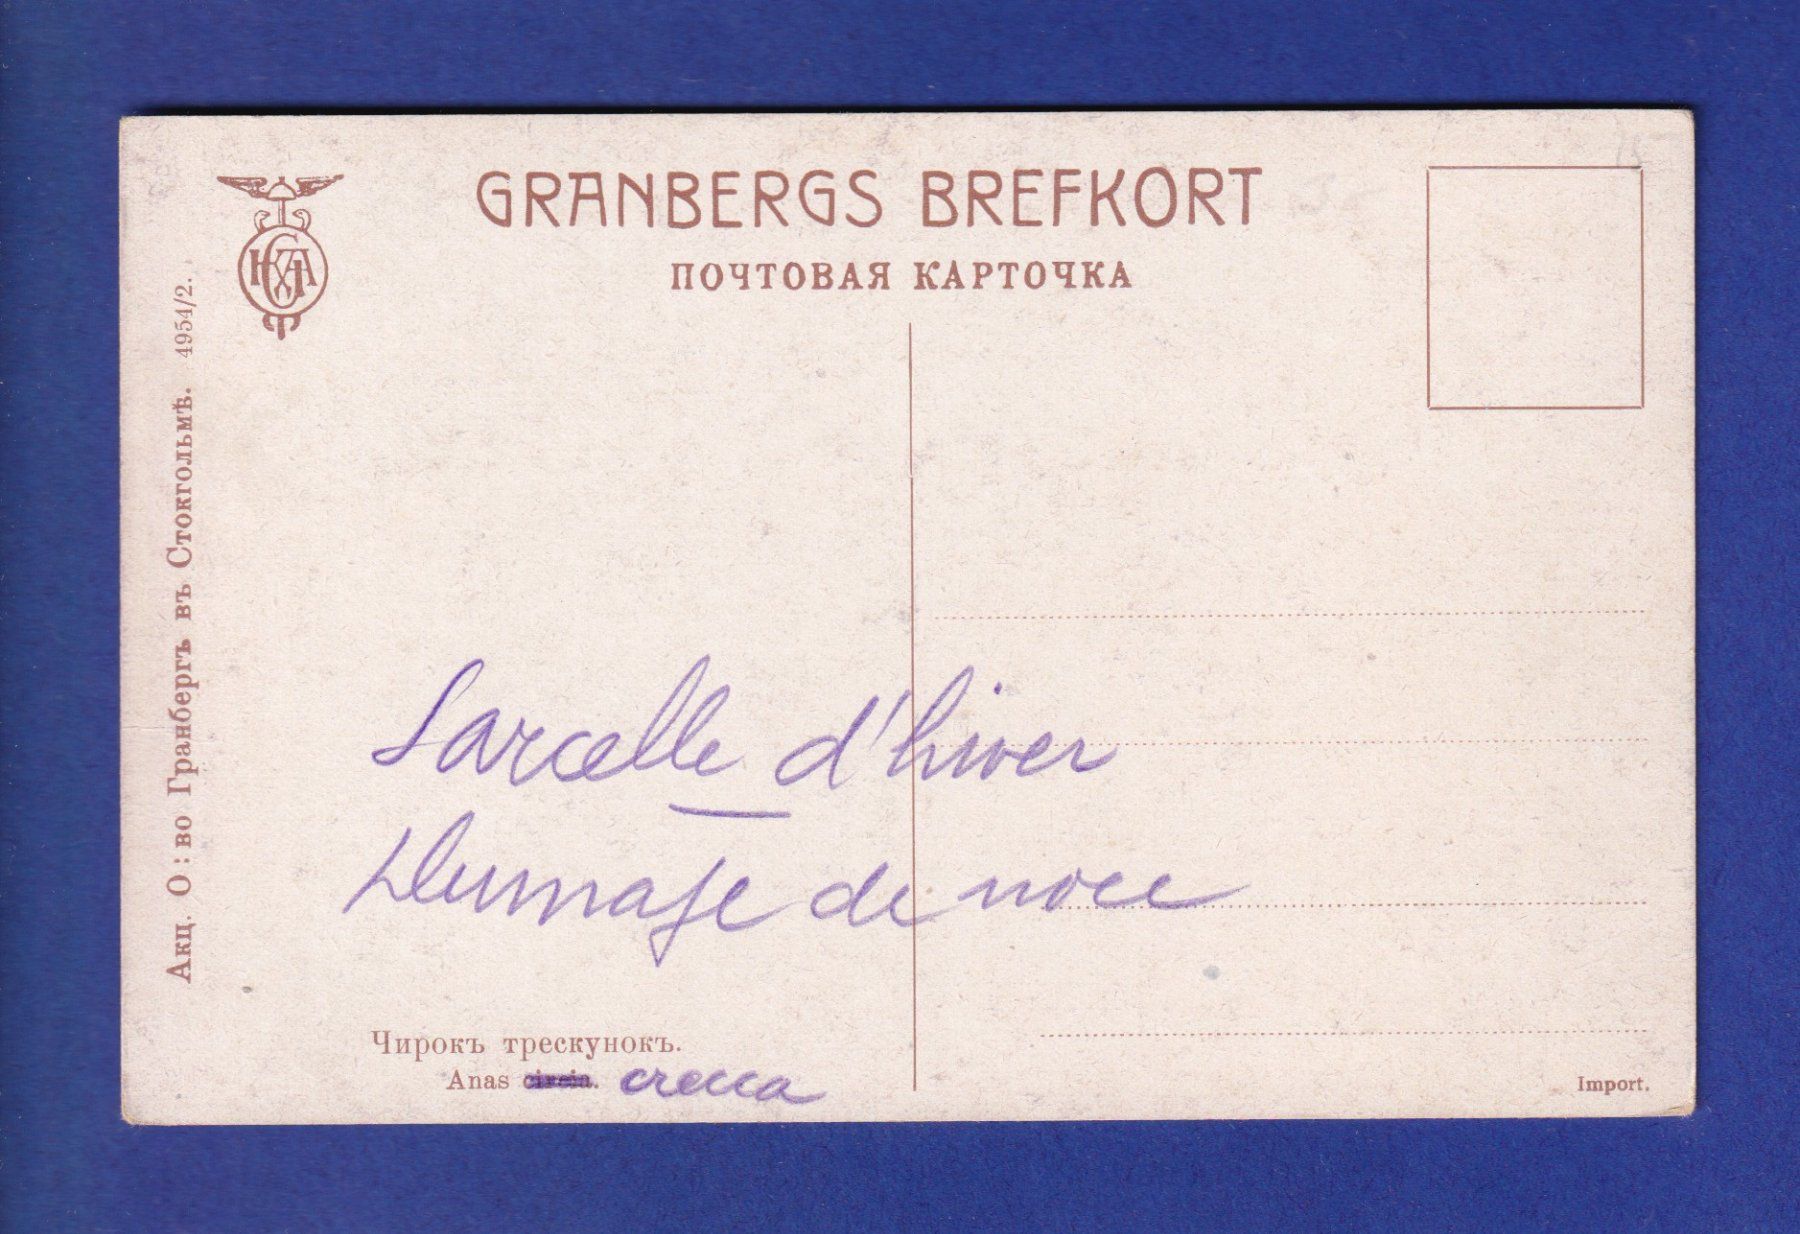 GRANBERGS BREFKORT
ПОЧТОВАЯ КАРТОЧКА
Акц. О:во Гранбергъ въ Стокгольмѣ. 4954/2.
Sarcelle d'hiver
Plumage de noce
Чирокъ трескунокъ.
Anas circia. crecca
Import.